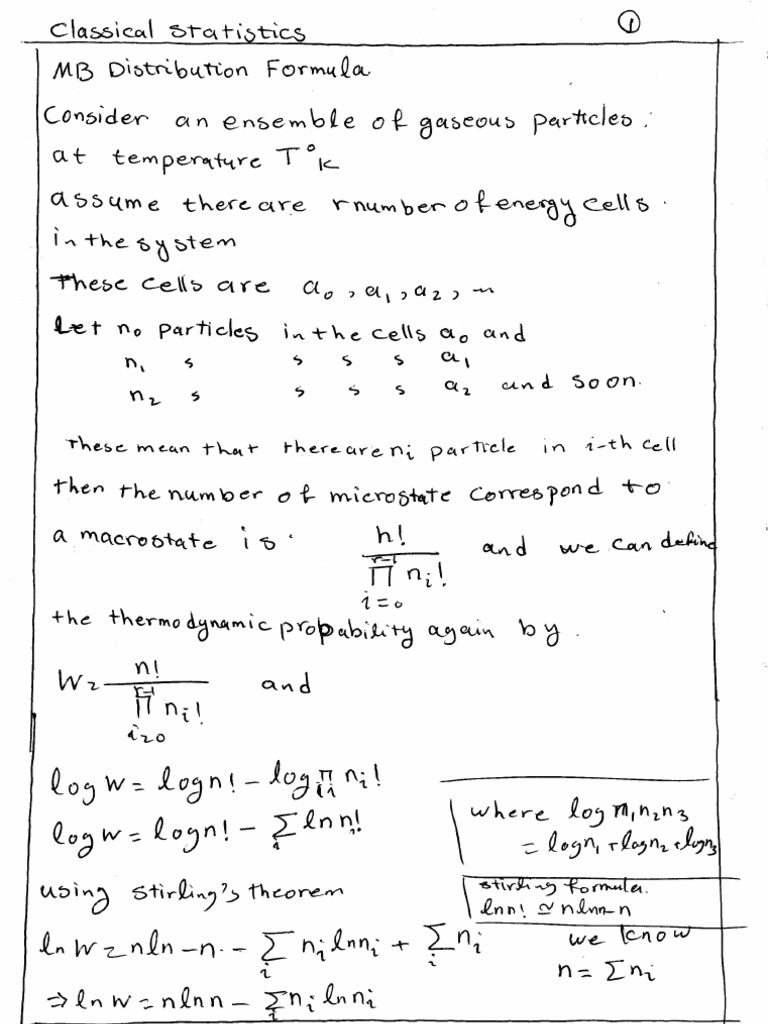 Classical Statistics ①
MB Distribution Formula
Consider an ensemble of gaseous particles.
at temperature T°K
assume there are r number of energy cells.
in the system
These cells are a₀, a₁, a₂, ...
Let n₀ particles in the cells a₀ and
n₁ s s s s a₁
n₂ s s s s a₂ and soon.
These mean that there are nᵢ particle in i-th cell
then the number of microstate correspond to
a macrostate is. n! / ∏_{i=0}^{r-1} nᵢ! and we can define
the thermodynamic probability again by.
W = n! / ∏_{i=0}^{r-1} nᵢ! and
log W = log n! - log ∏ᵢ nᵢ!
log W = log n! - Σᵢ ln nᵢ!
where log n₁n₂n₃
= log n₁ + log n₂ + log n₃
using Stirling's theorem
Stirling formula.
ln n! ≃ n ln n - n
ln W = n ln - n - Σᵢ nᵢ ln nᵢ + Σᵢ nᵢ
we know
n = Σ nᵢ
⇒ ln W = n ln n - Σᵢ nᵢ ln nᵢ